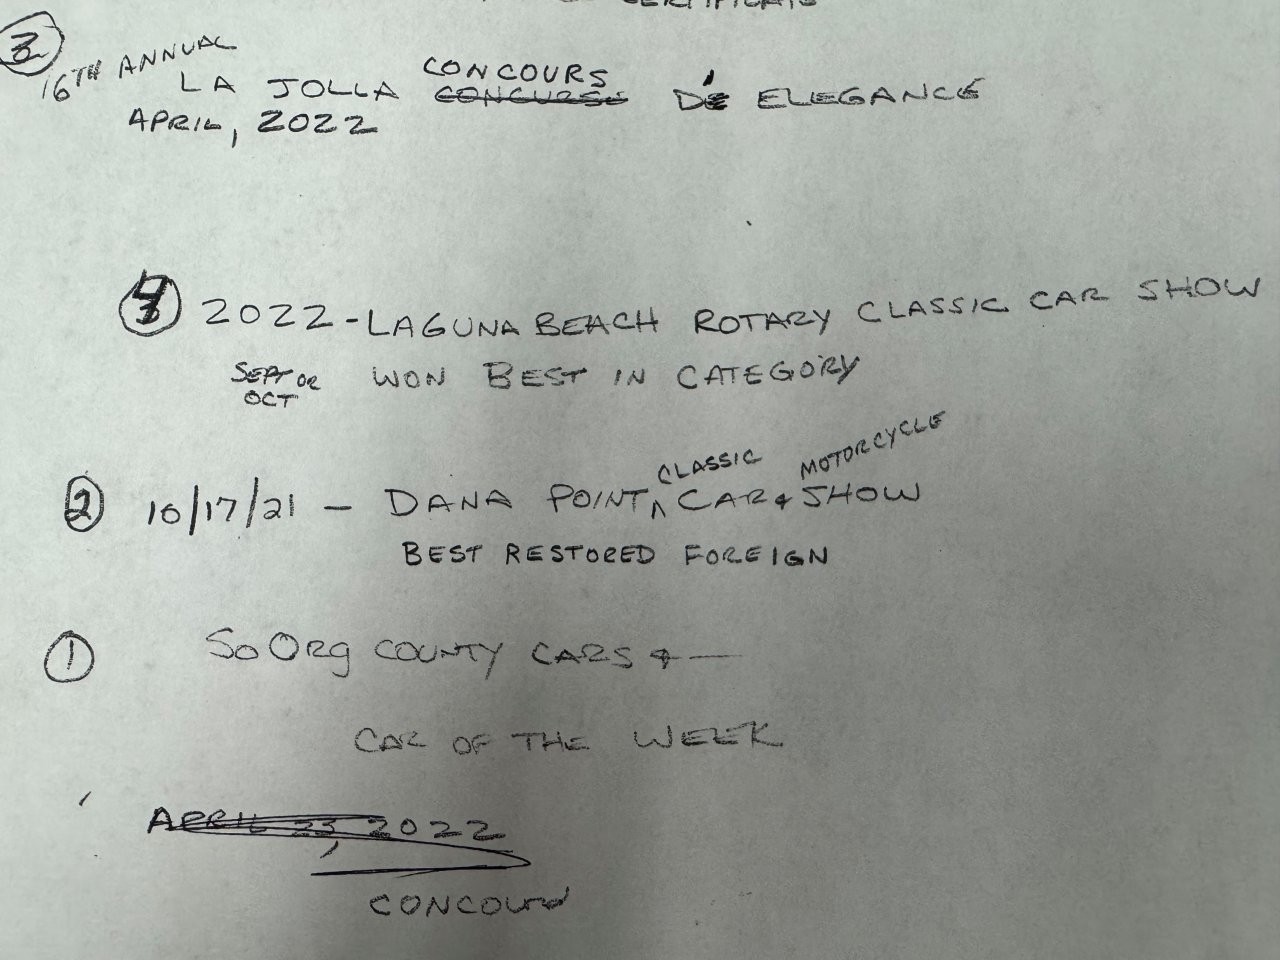 CERTIFICATE
3
16TH ANNUAL
LA JOLLA CONCOURS CONCURSE DÉ ELEGANCE
APRIL, 2022
4 2022 - LAGUNA BEACH ROTARY CLASSIC CAR SHOW
SEPT OR OCT WON BEST IN CATEGORY
CLASSIC MOTORCYCLE
2 10/17/21 - DANA POINT ^ CAR & SHOW
BEST RESTORED FOREIGN
1 So Org COUNTY CARS & —
CAR OF THE WEEK
APRIL 23, 2022
CONCOURS